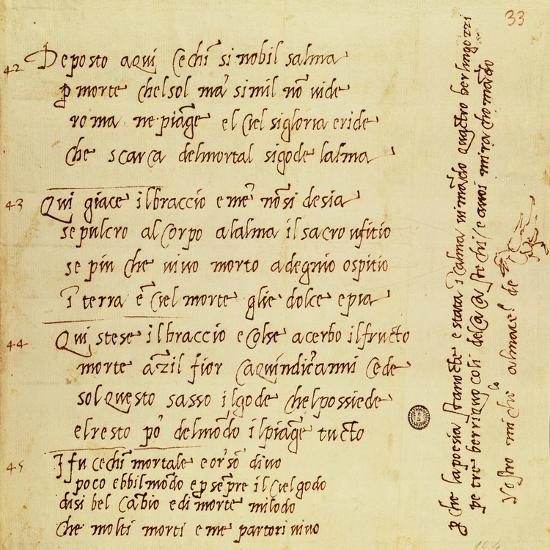 33
42 Deposto aqui cechi si nobil salma
p morte chelsol ma simil nō uide
roma ne piāge el ciel sigloria eride
che scarca delmortal sigode lalma
43 Qui giace ilbraccio e mē nōsi desia
sepulcro al corpo alalma il sacro ufitio
se piu che uiuo morto a degnio ospitio
ī terra ē ciel morte glie dolce e pia
44 Qui stese ilbraccio e colse acerbo ilfructo
morte āzil fior caquindicianni cede
sol questo sasso ilgode chelpossiede
el resto po del mōdo ilpiāge tucto
45 I fu cechī mortale e or sō diuo
poco ebbi l mōdo e p sēpre il ciel godo
di si bel cābio e di morte milodo
che molti morti e me partori uiuo
p che la poesia stanocte e stata ī calma ui mādo quactro berlingozzi
pe tre berriquocoli
e a uoi mi ra chomādo
Vostro michelagniolo